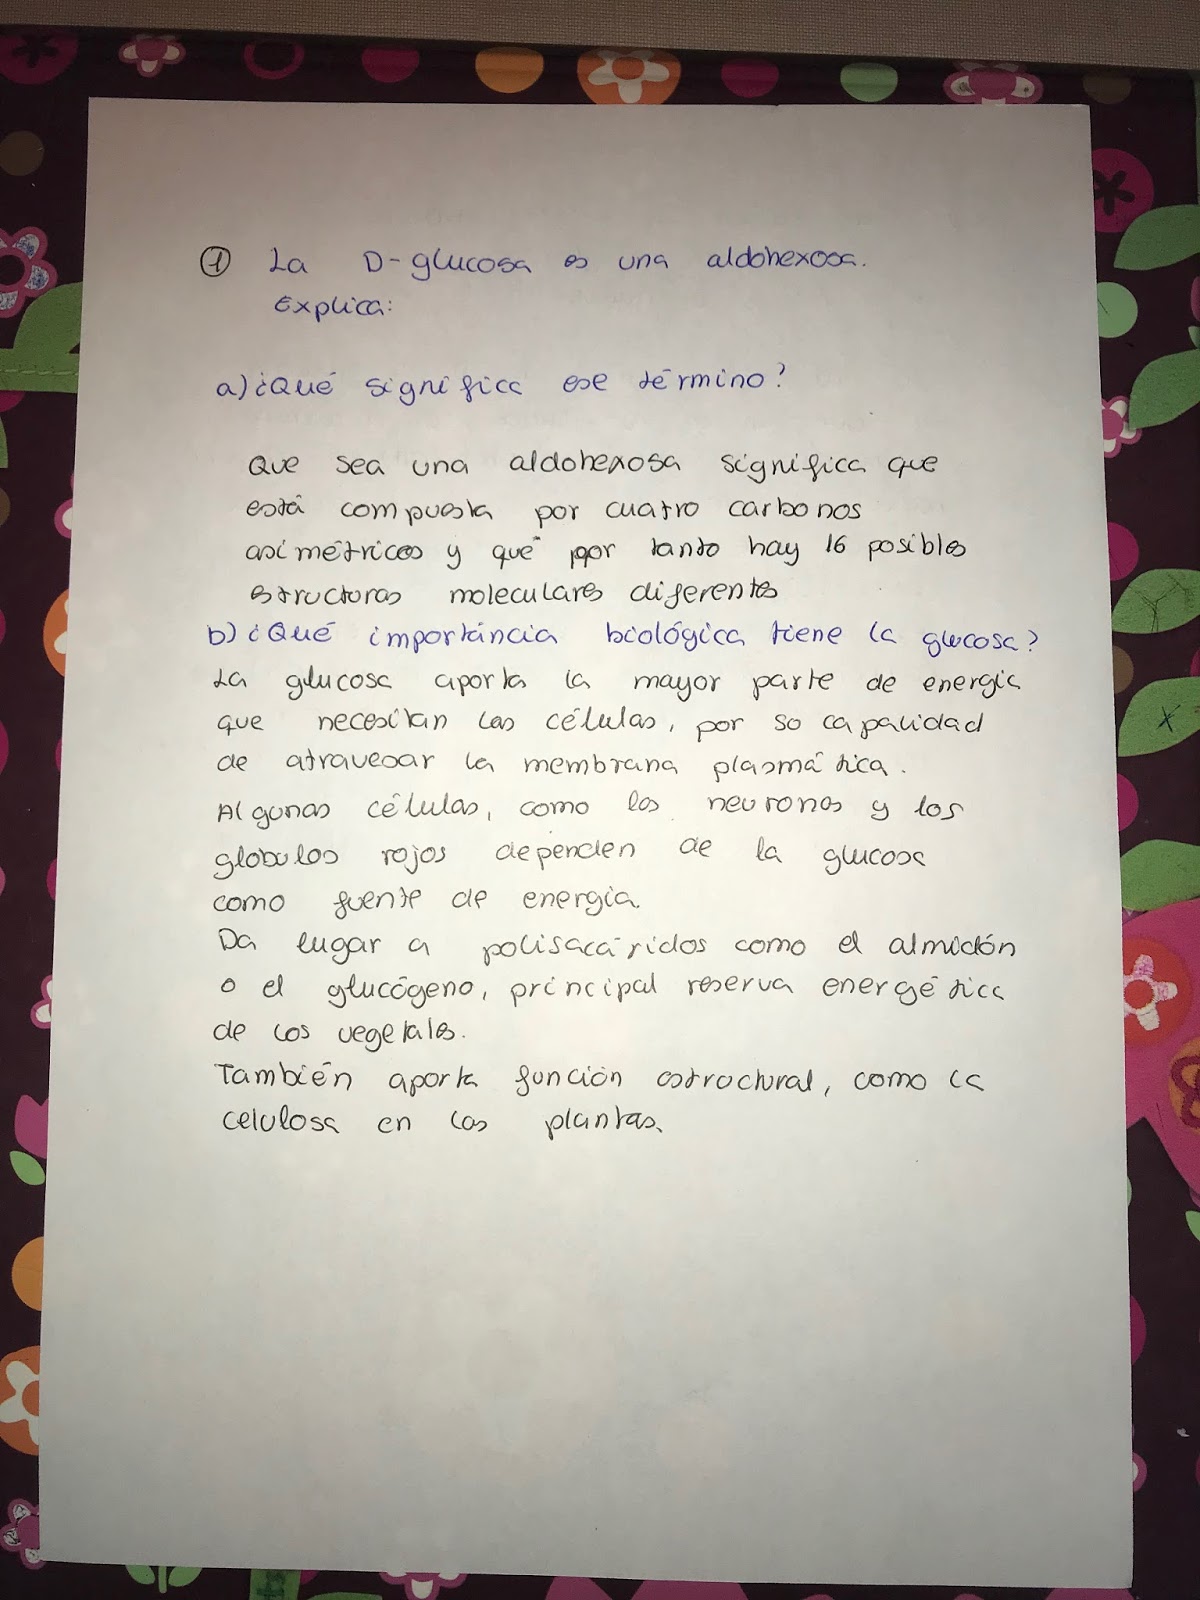 ① La D-glucosa es una aldohexosa.
Explica:
a) ¿Qué significa ese término?
Que sea una aldohexosa significa que
está compuesta por cuatro carbonos
asimétricos y que por tanto hay 16 posibles
estructuras moleculares diferentes
b) ¿Qué importancia biológica tiene la glucosa?
La glucosa aporta la mayor parte de energia
que necesitan las células, por so capacidad
de atravesar la membrana plasmática.
Algunas células, como las neuronas y los
globulos rojos dependen de la glucosa
como fuente de energía.
Da lugar a polisacáridos como el almidón
o el glucógeno, principal reserva energética
de los vegetales.
También aporta función estructural, como la
celulosa en las plantas.